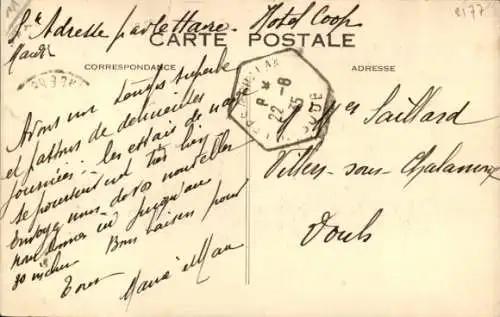 Adresse par le Havre - Hotel Coop
2177
CARTE POSTALE
CORRESPONDANCE
ADRESSE
Avons un temps superbe
et passons de délicieuses
journées. les essais de nage
se poursuivent très bien
Envoyez nous de vos nouvelles
nous sommes ici jusqu'au
30 inclus. Bons baisers pour
Tous
Marie et Max
22 - 8
35
Saillard
Villers-sous-Chalamont
Doubs